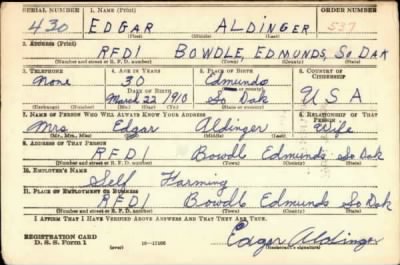 SERIAL NUMBER 1. NAME (Print) ORDER NUMBER
430 EDGAR ALDINGER 537
(First) (Middle) (Last)
2. ADDRESS (Print)
RFD1 BOWDLE, EDMUNDS, So DAK
(Number and street or R. F. D. number) (Town) (County) (State)
3. TELEPHONE 4. AGE IN YEARS 5. PLACE OF BIRTH 6. COUNTRY OF CITIZENSHIP
None 30 Edmunds
DATE OF BIRTH (Town or county)
March 22 1910 So Dak U S A
(Exchange) (Number) (Mo.) (Day) (Yr.) (State or country)
7. NAME OF PERSON WHO WILL ALWAYS KNOW YOUR ADDRESS 8. RELATIONSHIP OF THAT PERSON
Mrs Edgar Aldinger Wife
(Mr., Mrs., Miss) (First) (Middle) (Last)
9. ADDRESS OF THAT PERSON
RFD1 Bowdl Edmunds So Dak
(Number and street or R. F. D. number) (Town) (County) (State)
10. EMPLOYER'S NAME
Self Farming
11. PLACE OF EMPLOYMENT OR BUSINESS
RFD1 Bowdl Edmunds So Dak
(Number and street or R. F. D. number) (Town) (County) (State)
I AFFIRM THAT I HAVE VERIFIED ABOVE ANSWERS AND THAT THEY ARE TRUE.
REGISTRATION CARD
D. S. S. Form 1 (over) 16-17105 Edgar Aldinger
(Registrant's signature)